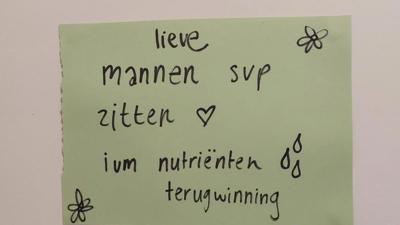 lieve
mannen svp
zitten ♡
ivm nutriënten
terugwinning